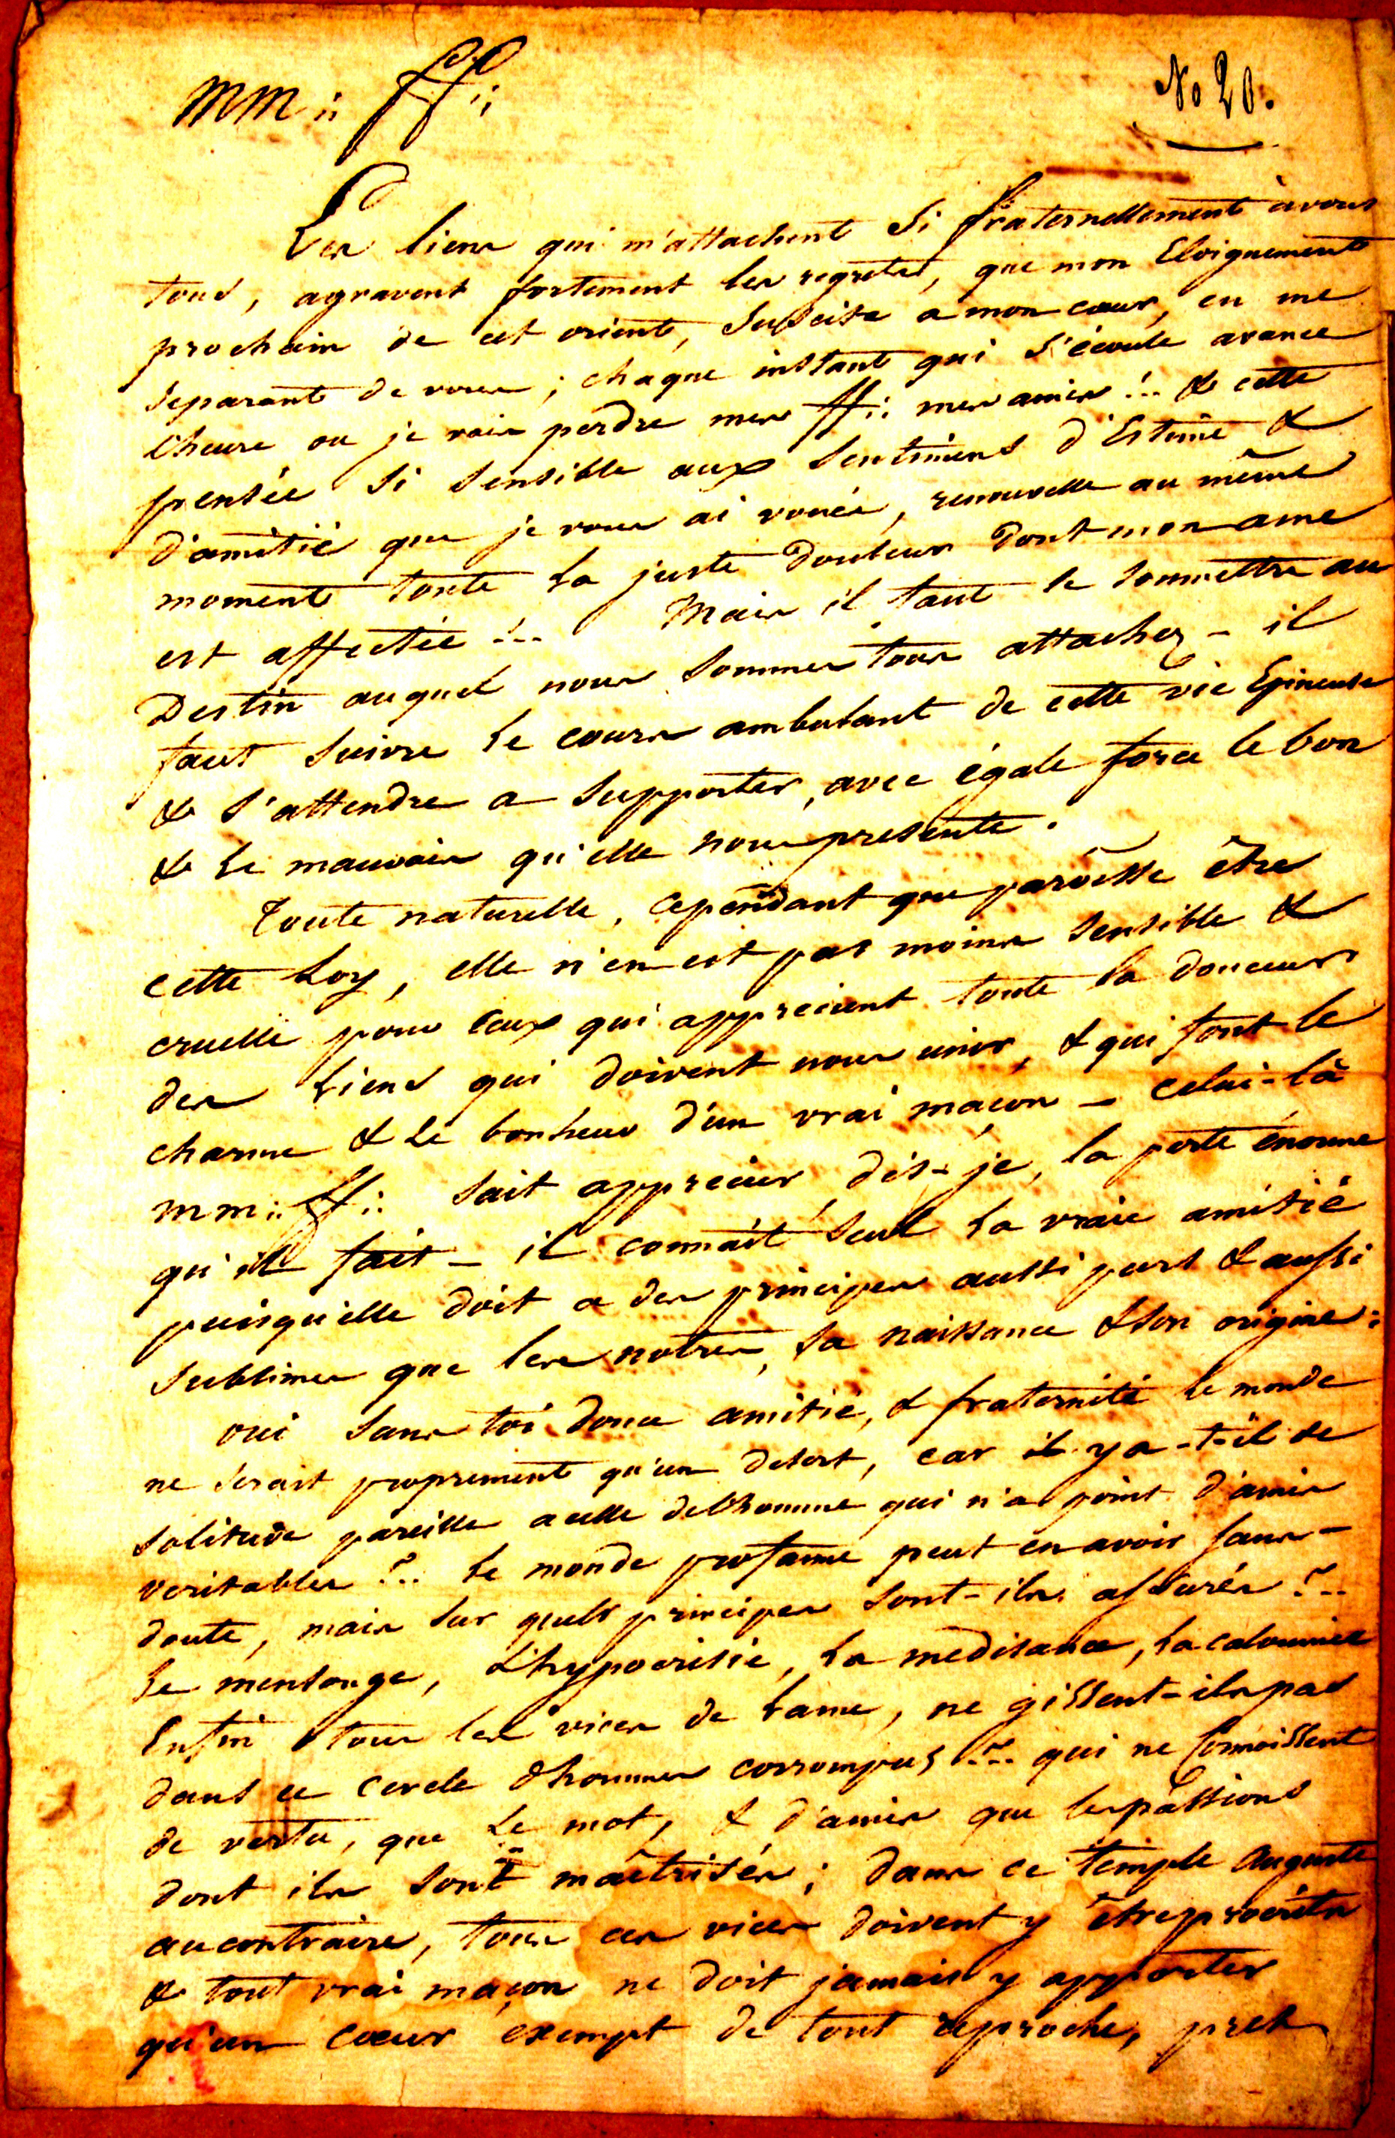 MM ∴ ff ∴
No 20.
Les liens qui m'attachent si fraternellement à vous
tous, agravent fortement les regrets, que mon Eloignement
prochain de cet orient, suscite a mon cœur, en me
separant de vous ; chaque instant qui s'écoule avance
l'heure ou je vais perdre mes ff ∴ mes amis !.. & cette
pensée si sensible aux sentimens d'Estime &
d'amitié que je vous ai vouée, renouvelle au même
moment toute la juste douleur dont mon ame
est affectée !... Mais il faut se soumettre au
Destin auquel nous sommes tous attachez - il
faut suivre le cours ambulant de cette vie Epineuse
& s'attendre a supporter, avec égale force le bon
& le mauvais qu'elle nous presente.
Toute naturelle, cependant que paroisse être
cette Loy, elle n'en est pas moins sensible &
cruelle pour ceux qui apprecient toute la douceur
des Liens qui doivent nous unir, & qui font le
charme & le bonheur d'un vrai maçon - celui-là
mm ∴ ff ∴ sait apprecier, dis-je, la perte énorme
qu'il fait - il connait seul la vraie amitié
puisqu'elle doit a des principes aussi purs & aussi
sublimes que les notres, sa naissance & son origine :
oui sans toi douce amitié, & fraternité le monde
ne serait proprement qu'un desert, car il y a-t-il de
solitude pareille a celle de l'homme qui n'a point d'amis
veritables ?.. Le monde profane peut en avoir sans-
doute, mais sur quels principes sont-ils assurés ?...
Le mensonge, l'hypocrisie, la medisance, la calomnie
Enfin tous les vices de lame, ne gissent-ils pas
dans ce cercle d'hommes corrompus ?... qui ne Connoissent
de vertu, que le mot, & d'amis que les passions
dont ils sont maîtrisés ; dans ce Temple Auguste
au contraire, tous ces vices doivent y être proscrits
& tout vrai maçon ne doit jamais y apporter
qu'un cœur exempt de tout reproche, pret